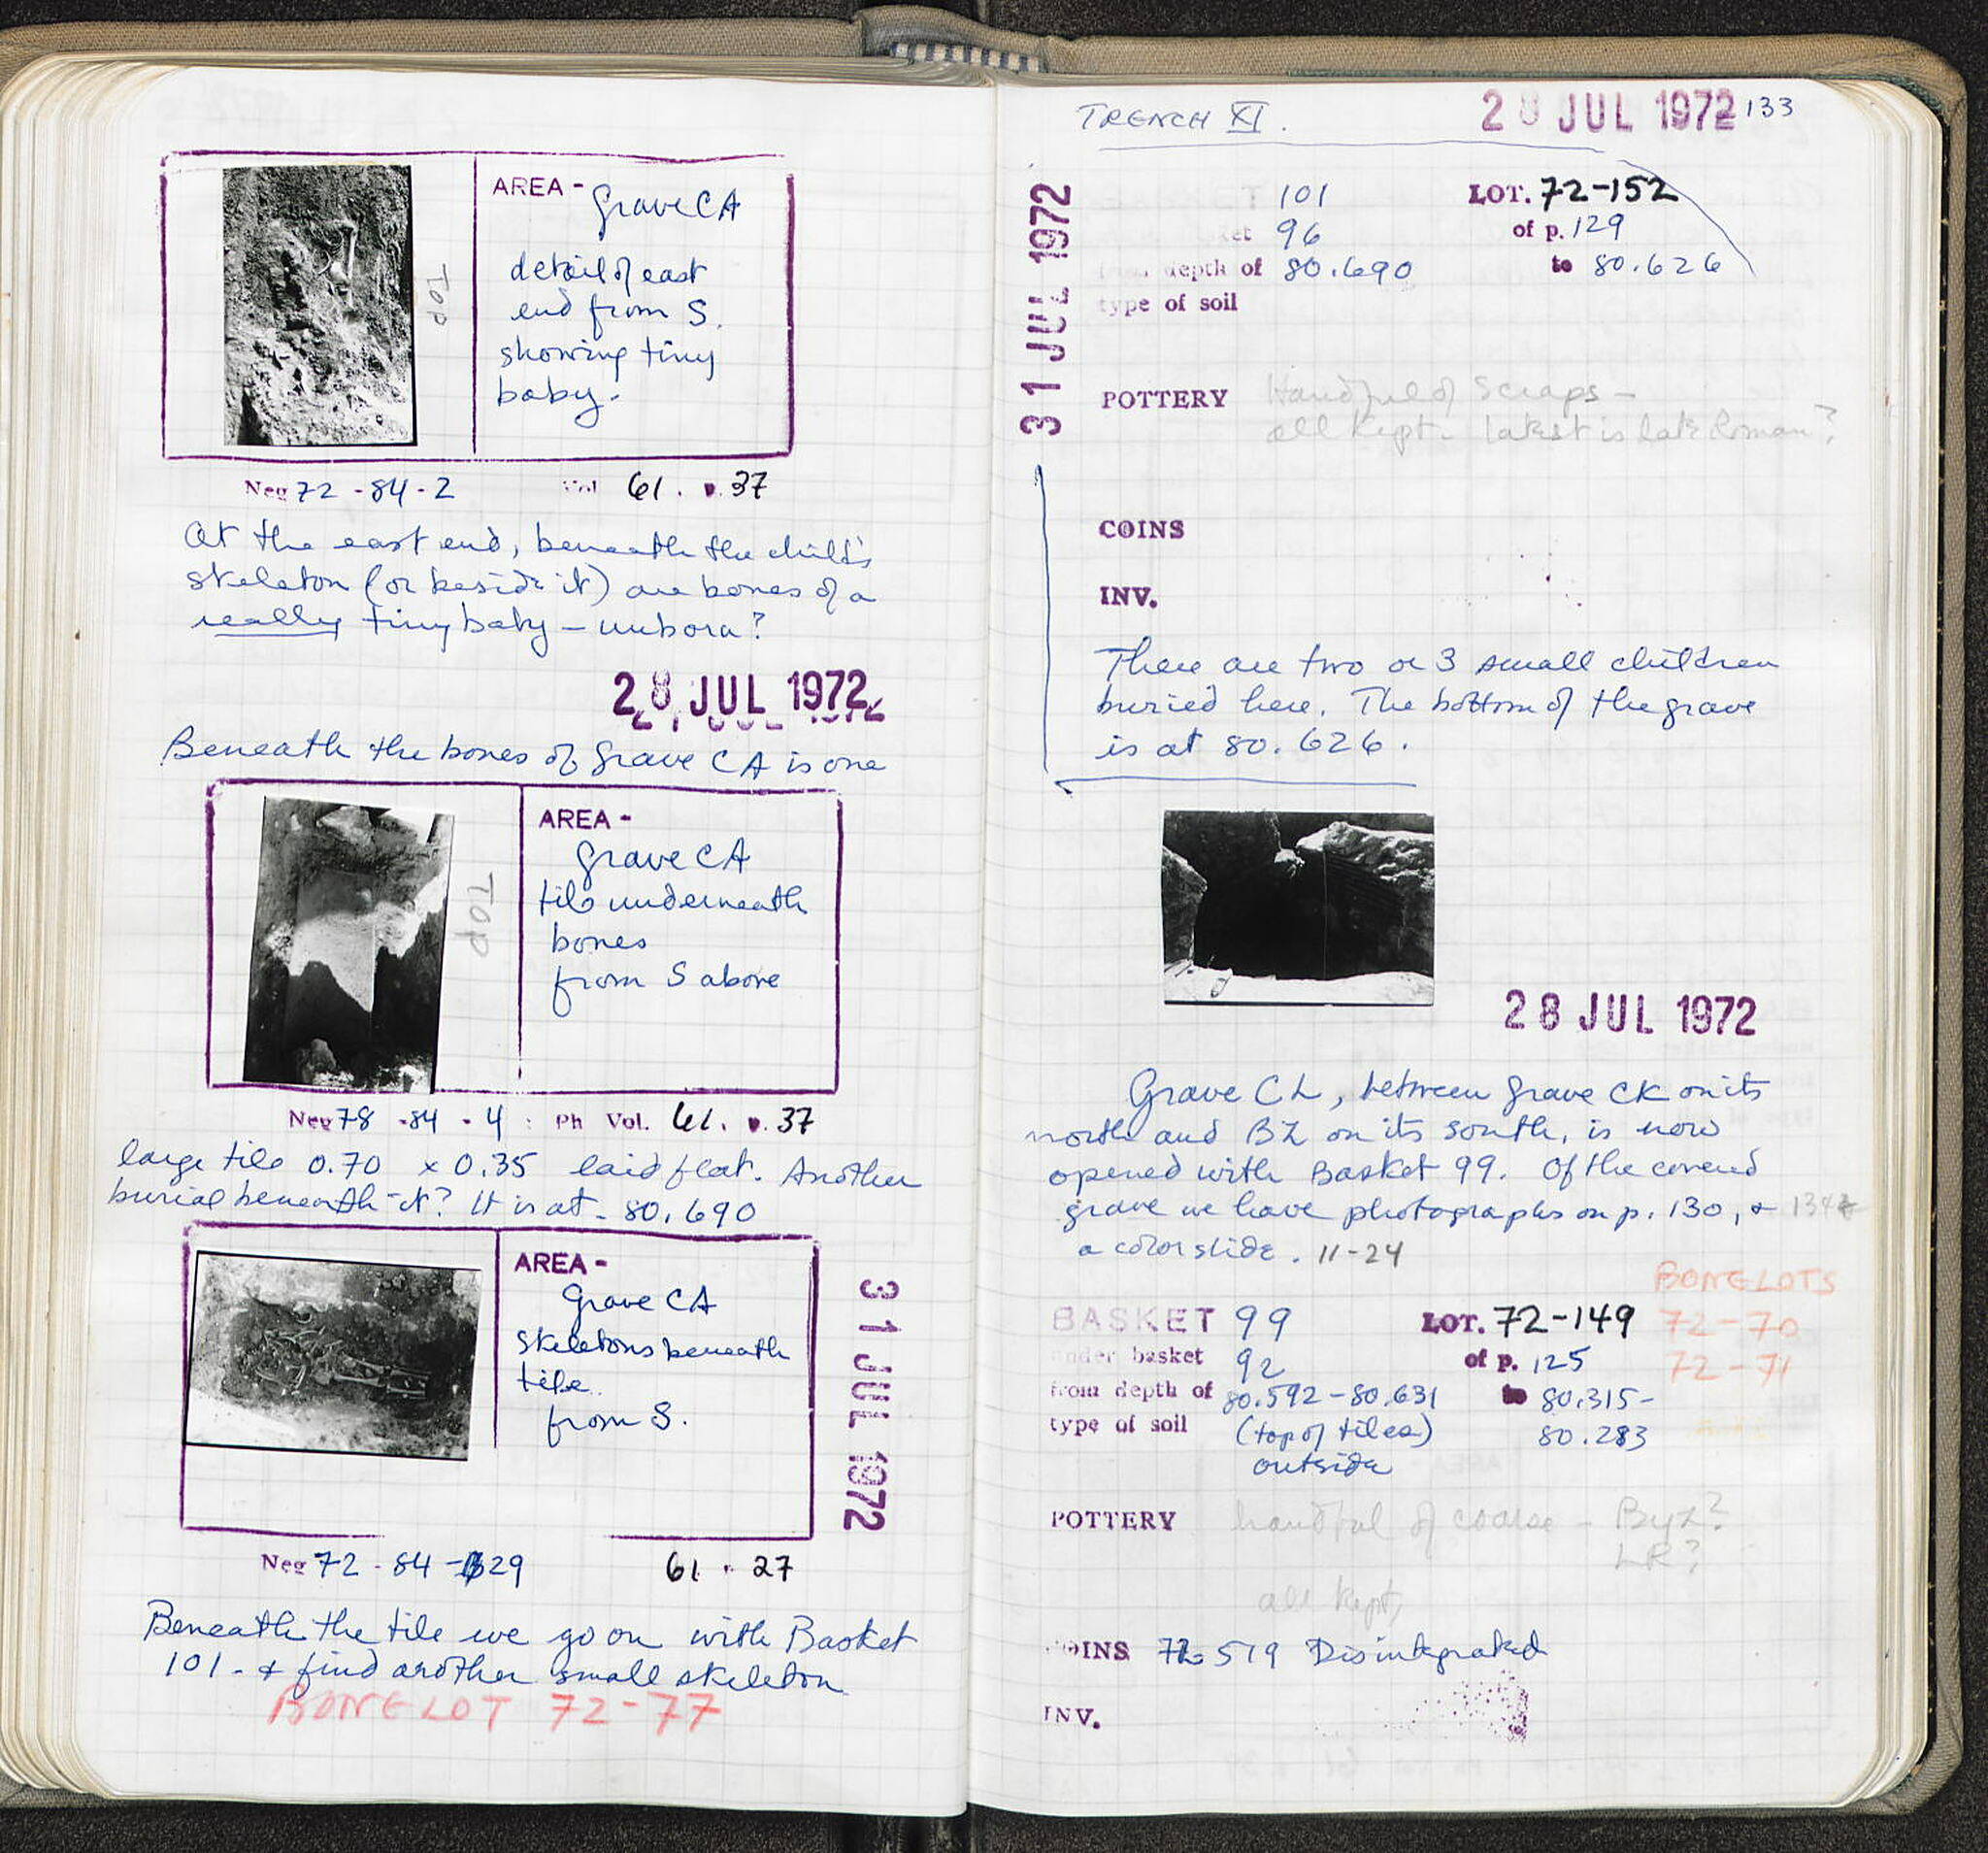 AREA -
Grave CA
detail of east
end from S.
showing tiny
baby.
TOP
Neg 72 - 84 - 2 Vol 61. p. 37
At the east end, beneath the child's
skeleton (or beside it) are bones of a
really tiny baby – unborn?
28 JUL 1972
Beneath the bones of Grave CA is one
AREA -
Grave CA
tile underneath
bones
from S above
TOP
Neg 78 - 84 - 4 : Ph Vol. 61. p. 37
large tile 0.70 x 0.35 laid flat. Another
burial beneath it? It is at - 80.690
AREA -
Grave CA
skeletons beneath
tile.
from S.
31 JUL 1972
Neg 72 - 84 - 29 61 27
Beneath the tile we go on with Basket
101 - & find another small skeleton
BONE LOT 72-77
TRENCH XI. 28 JUL 1972 133
31 JUL 1972
101 LOT. 72-152
96 of p. 129
depth of 80.690 to 80.626
type of soil
POTTERY Handful of scraps –
all kept. latest is late Roman?
COINS
INV.
There are two or 3 small children
buried here. The bottom of the grave
is at 80.626.
28 JUL 1972
Grave CL, between Grave CK on its
north and BZ on its south, is now
opened with Basket 99. Of the covered
grave we have photographs on p. 130, & 134
a color slide. 11-24
BONE LOTS
BASKET 99 LOT. 72-149 72-70
under basket 92 of p. 125 72-71
from depth of 80.592-80.631 to 80.315-
type of soil (top of tiles) 80.283
outside
POTTERY handful of coarse – Byz?
LR?
all kept,
COINS 72 519 Disintegrated
INV.